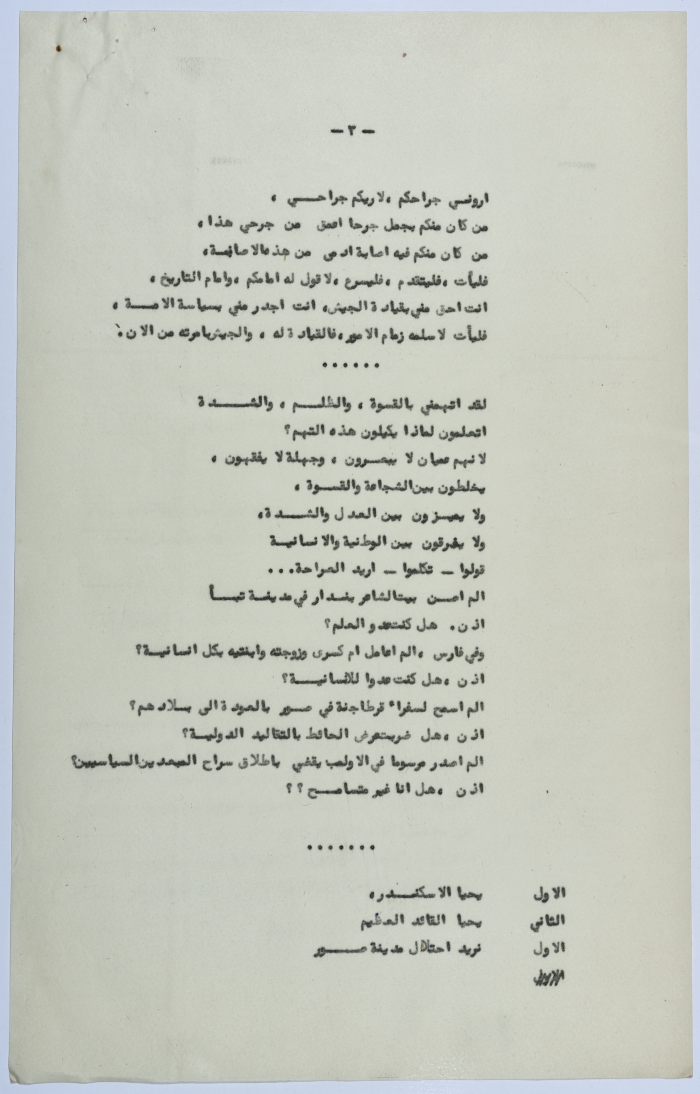 - ٣ -
ارونــي جراحكم ، لاريكم جراحــي ،
من كان منكم يحمل جرحا اعمق من جرحي هذا ،
من كان منكم فيه اصابة ادمى من هذه الاصابة ،
فليأت ، فليتقدم ، فليسرع ، لا قول له امامكم ، وامام التاريخ ،
انت احق مني بقيادة الجيش ، انت اجدر مني بسياسة الامــة ،
فليأت لاسلمه زمام الامور ، فالقيادة له ، والجيش بامرته من الان .
......
لقد اتهمني بالقسوة ، والظلــم ، والشــدة
اتعلمون لماذا يكيلون هذه التهم ؟
لانهم عميان لا يبصرون ، وجهلة لا يفقهون ،
يخلطون بين الشجاعة والقسوة ،
ولا يميزون بين العدل والشــدة ،
ولا يفرقون بين الوطنية والانسانية
قولوا - تكلموا - اريد الصراحة ...
الم اصــن بيت الشاعر بندار في مدينة تبــأ
اذن . هل كنت عدو العلم ؟
وفي فارس ، الم اعامل ام كسرى وزوجته وابنتيه بكل انسانيــة ؟
اذن ، هل كنت عدوا للانسانيــة ؟
الم اسمح لسفراء قرطاجنة في صــور بالعودة الى بــلادهم ؟
اذن ، هل ضربت عرض الحائط بالتقاليد الدوليــة ؟
الم اصدر مرسوما في الاولمب يقضي باطلاق سراح المبعدين السياسيين ؟
اذن ، هل انا غير متسامــح ؟ ؟
.......
الاول يحيا الاسكنــدر ،
الثاني يحيا القائد العظيم
الاول نريد احتلال مدينة صــور